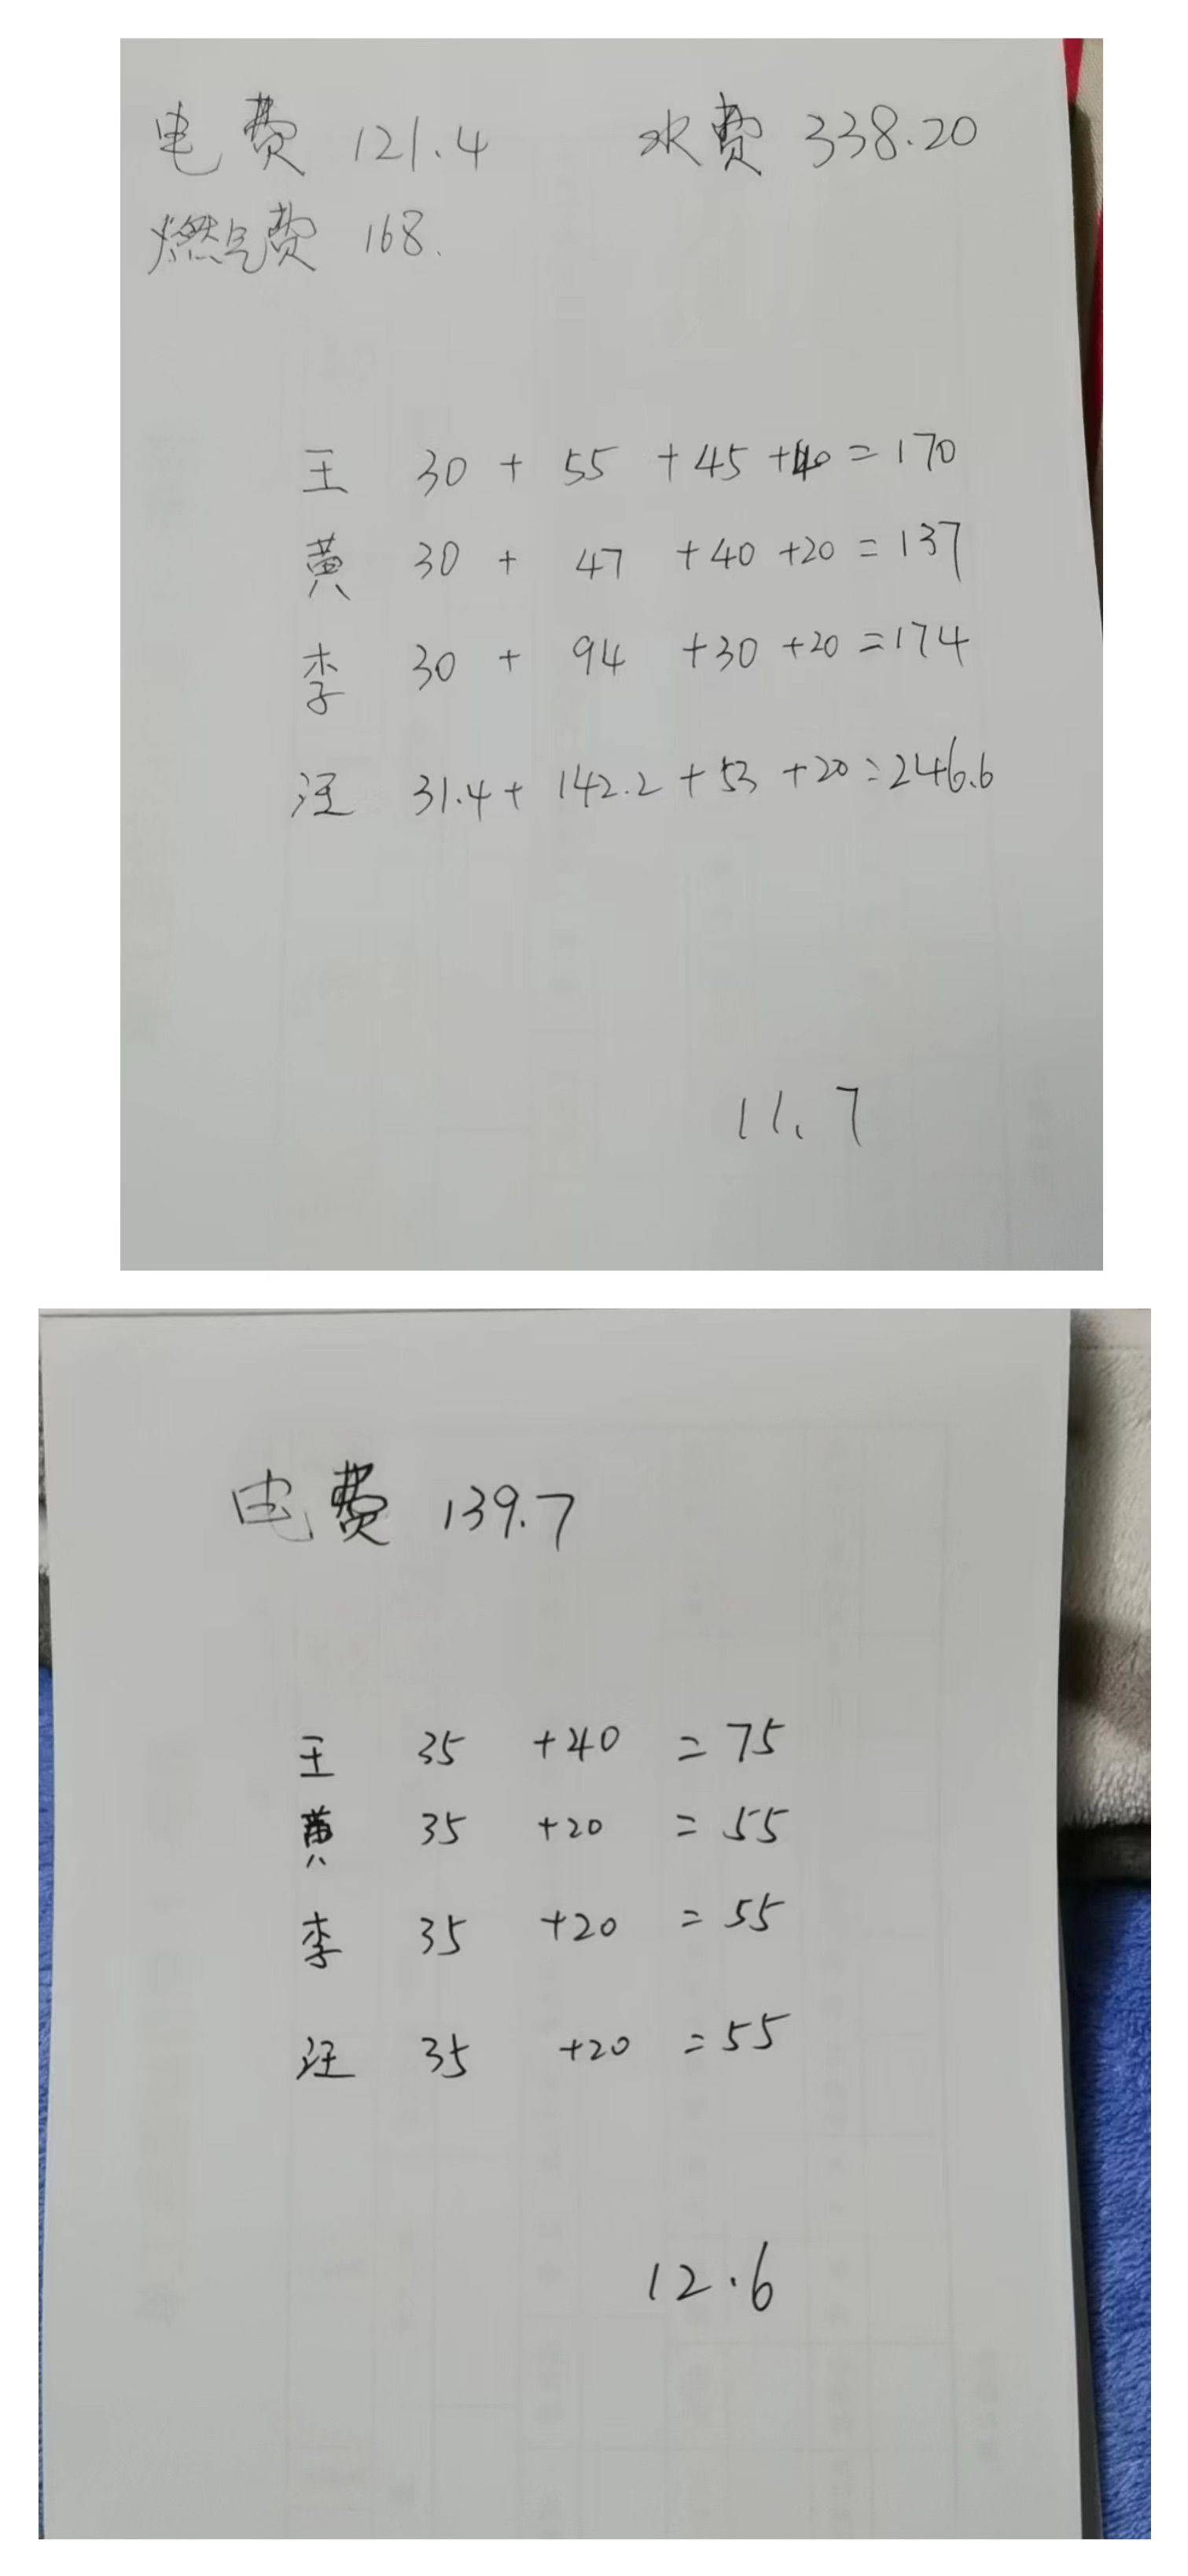 电费 121.4 水费 338.20
燃气费 168.
王 30 + 55 +45 +40 = 170
黄 30 + 47 +40 +20 = 137
李 30 + 94 +30 +20 = 174
汪 31.4 + 142.2 + 53 +20 = 246.6
11.7
电费 139.7
王 35 +40 = 75
黄 35 +20 = 55
李 35 +20 = 55
汪 35 +20 = 55
12.6